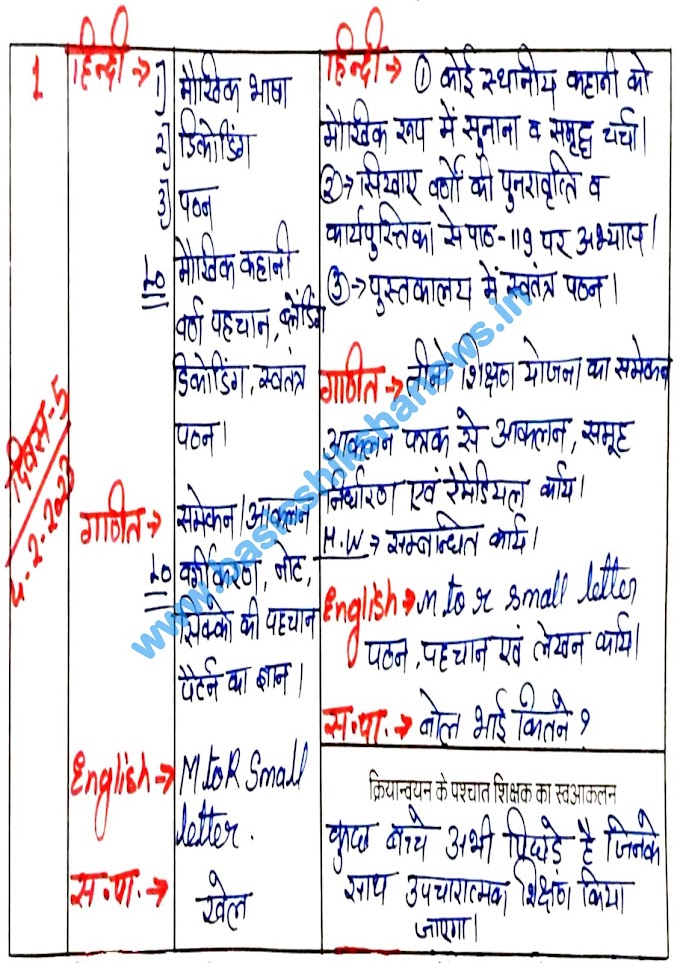 1
दिवस-5
4.2.2023
हिन्दी →
1) मौखिक भाषा
2) डिकोडिंग
3) पठन
LO मौखिक कहानी
वर्ण पहचान, ब्लेंडिंग
डिकोडिंग, स्वतंत्र
पठन।
गणित →
समेकन/आकलन
LO वर्गीकरण, नोट,
सिक्को की पहचान
पैटर्न का ज्ञान।
English → M to R Small
letter.
स.पा. → खेल
हिन्दी → ① कोई स्थानीय कहानी को
मौखिक रूप में सुनाना व समृद्ध चर्चा।
②→ सिखाए वर्णों की पुनरावृत्ति व
कार्यपुस्तिका से पाठ-119 पर अभ्यास।
③→ पुस्तकालय में स्वतंत्र पठन।
गणित → तीनो शिक्षण योजना का समेकन
आकलन पत्रक से आकलन, समूह
निर्धारण एवं रेमेडियल कार्य।
H.W → सम्बन्धित कार्य।
English → M to r small letter
पठन, पहचान एवं लेखन कार्य।
स.पा. → बोल भाई कितने ?
क्रियान्वयन के पश्चात शिक्षक का स्वआकलन
कुछ बच्चे अभी पिछड़े है जिनके
साथ उपचारात्मक शिक्षण किया
जाएगा।
www.basicshikshanews.in